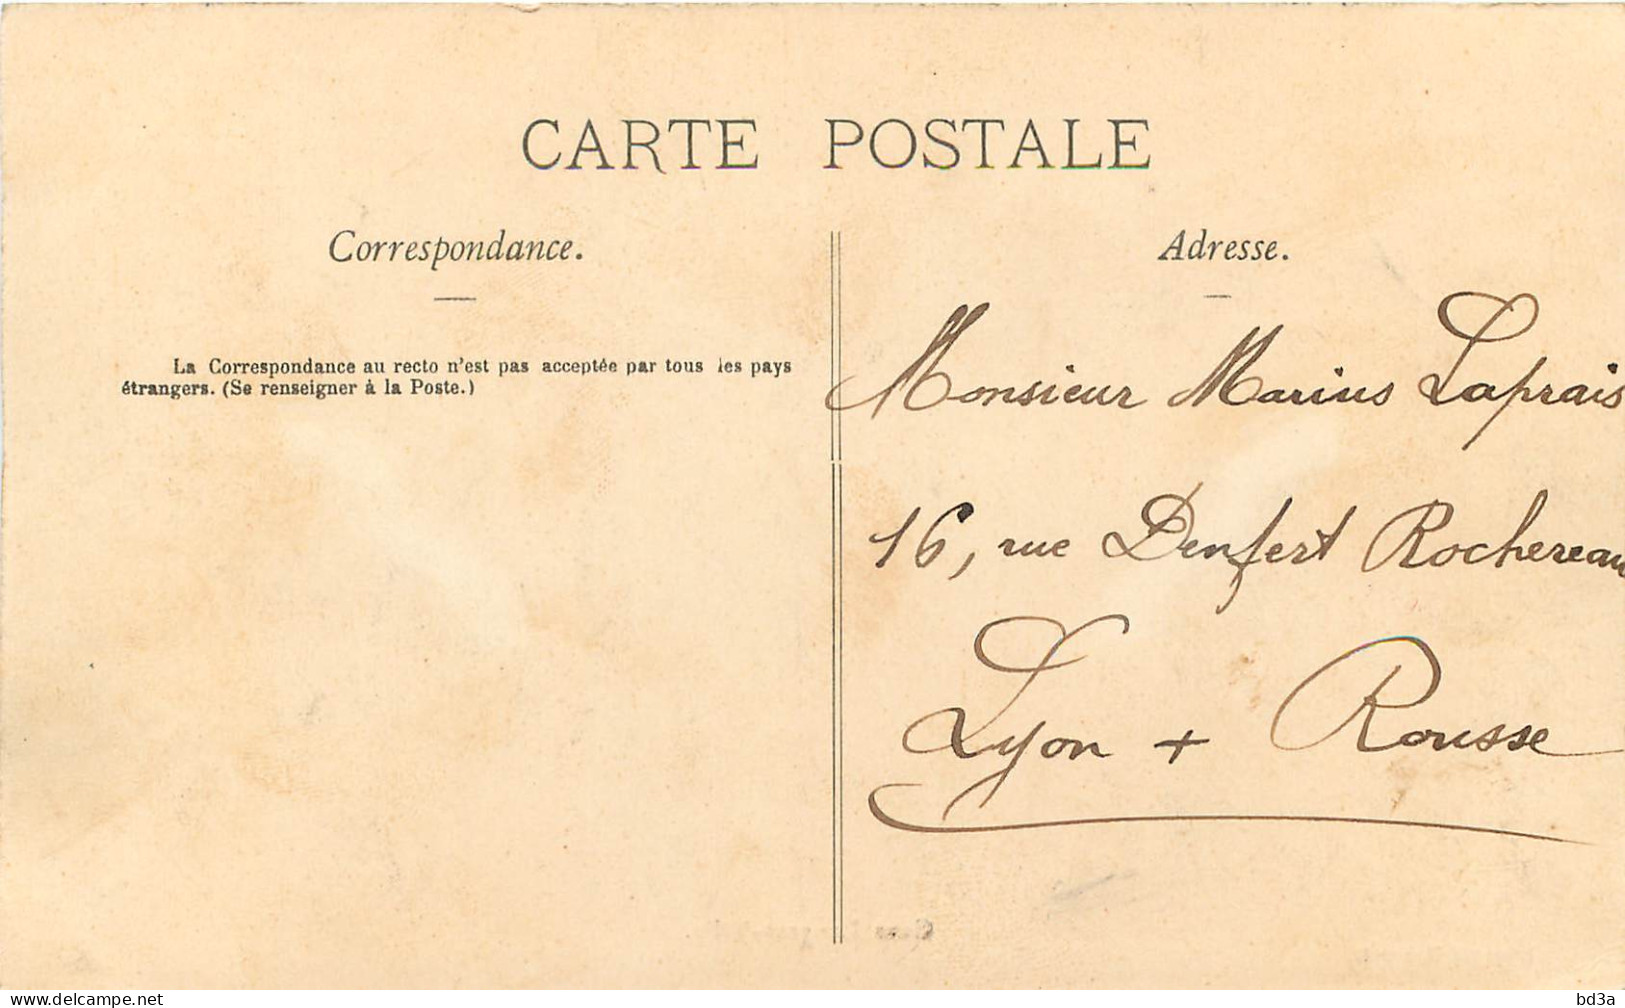 CARTE POSTALE
Correspondance.
La Correspondance au recto n'est pas acceptée par tous les pays
étrangers. (Se renseigner à la Poste.)
Adresse.
Monsieur Marius Laprais
16, rue Denfert Rochereau
Lyon + Rousse
www.delcampe.net
bd3a